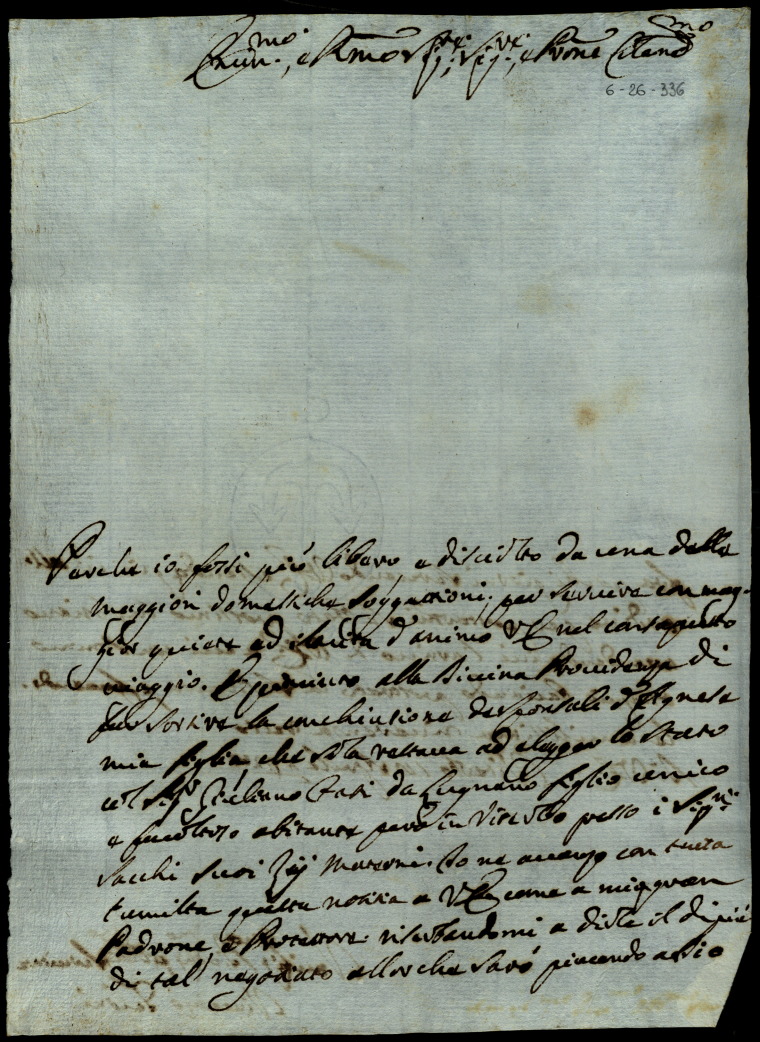 Emin.mo, e Rmo Sig.re, Sig.re, e Prone Clemo
6-26-336
Perche io fossi più libero, e disciolto da una delle
maggiori domestiche soggettioni, per servire con mag-
gior quiete ed ilarità d'animo VE nel consaputo
viaggio. È piaciuto alla Divina Providenza di
far sortire la conchiusione de sponsali d'Agnese
mia figlia, che sola restava ad elegger lo stato
col Sig.r Giuliano Fati da Lugnano figlio unico
e facoltoso abitante però in Viterbo presso i Sig.ri
Sacchi suoi Zij Materni. Io ne avanzo con tutta
l'umiltà questa notizia a VE come a mio gran
Padrone, e Protettore riserbandomi a dirle il di più
di tal negoziato allorche sarò piacendo a Dio